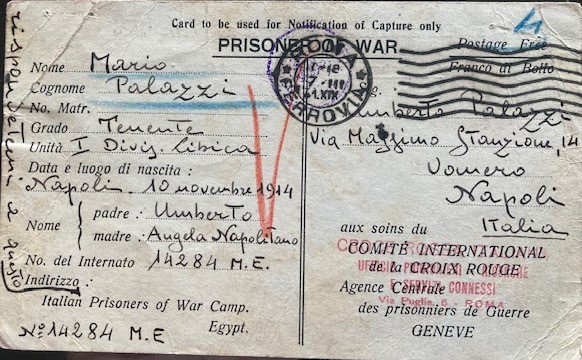 Card to be used for Notification of Capture only
PRISONER OF WAR
Postage Free
Franco di Bollo
Nome Mario
Cognome Palazzi
No. Matr.
Grado Tenente
Unità I Divis. Libica
Data e luogo di nascita :
Napoli - 10 novembre 1914
Nome
padre : Umberto
madre : Angela Napolitano
No. del Internato 14284 M.E.
Indirizzo :
Italian Prisoners of War Camp.
Egypt.
No 14284 M.E
rispondetemi a questo
FERROVIA
Umberto Palazzi
Via Massimo Stanzione, 14
Vomero
Napoli
Italia
aux soins du
COMITÉ INTERNATIONAL
de la CROIX ROUGE
Agence Centrale
des prisonniers de Guerre
GENEVE
UFFICIO
E SERVIZI CONNESSI
Via Puglie, 6 - ROMA